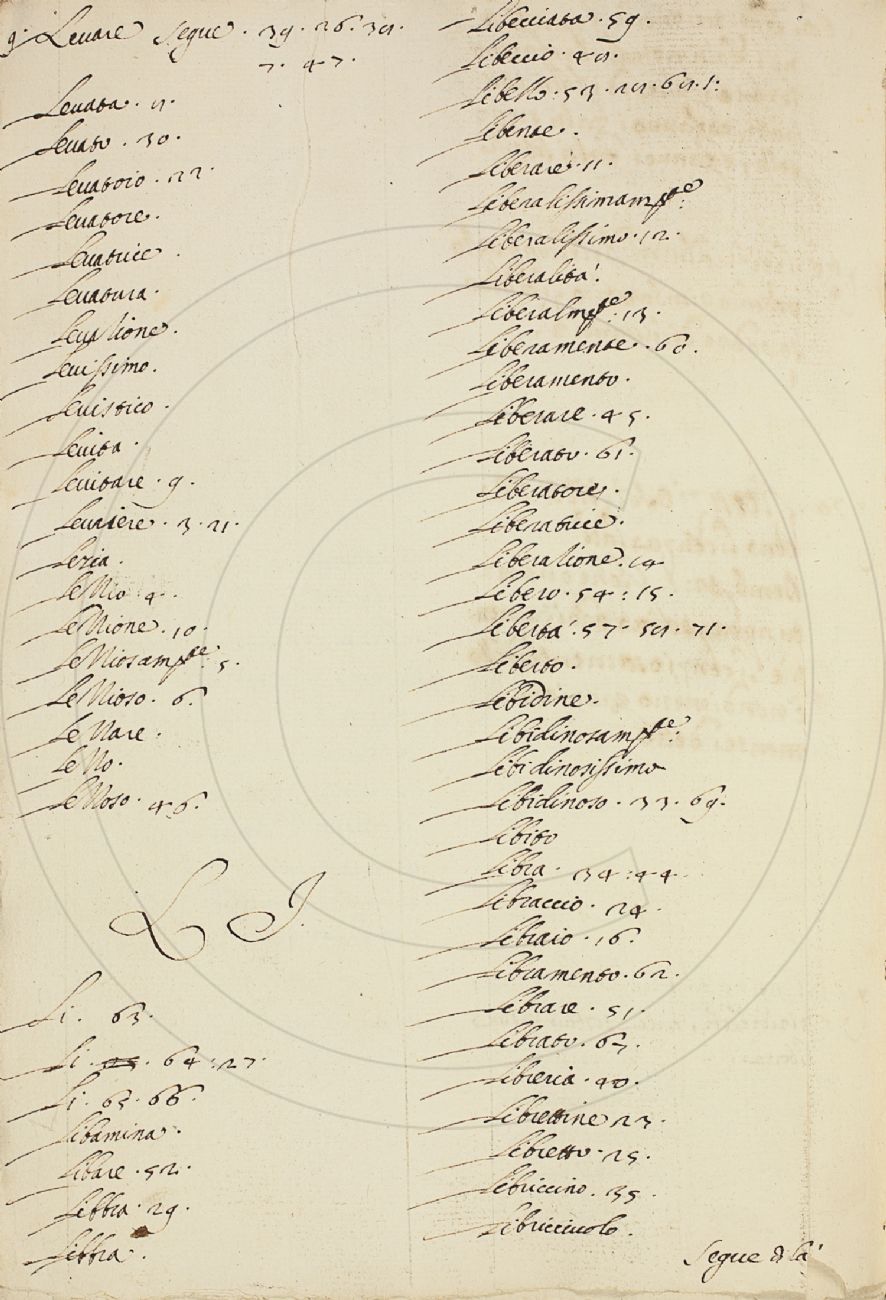 g. Leuare segue. 39. 26. 30.
7. 47.
Leuata. 11.
Leuato. 30.
Leuatoio. 22.
Leuatore.
Leuatrice.
Leuatura.
Leuazione.
Leuissimo.
Leuistico.
Leuita.
Leuitare. 9.
Leuriere. 3. 21.
Lezia.
Lezzio. 4.
Lezzione. 10.
Lezziosam.te 5.
Lezzioso. 6.
Lezzare.
Lezzo.
Lezzoso. 46.
L I.
Li. 63.
Li. 64. 27.
Li. 65. 66.
Libamina.
Libare. 52.
Libbra. 29.
Libbra.
Libecciata. 59.
Libeccio. 40.
Libello. 53. 20. 60. 1.
Libente.
Liberare. 11.
Liberalissimam.te
Liberalissimo. 12.
Liberalità.
Liberalm.te 13.
Liberamente. 60.
Liberamento.
Liberare. 45.
Liberato. 61.
Liberatore.
Liberatrice.
Liberazione. 14
Libero. 54. 15.
Libertà. 57. 50. 71.
Liberto.
Libidine.
Libidinosam.te
Libidinosissimo
Libidinoso. 33. 69.
Libito
Libra. 34. 44.
Libraccio. 24.
Libraio. 16.
Libramento. 62.
Librare. 51.
Librato. 67.
Libreria. 40.
Librettine 23.
Libretto. 25.
Libriccino. 35.
Libricciuolo.
Segue di là